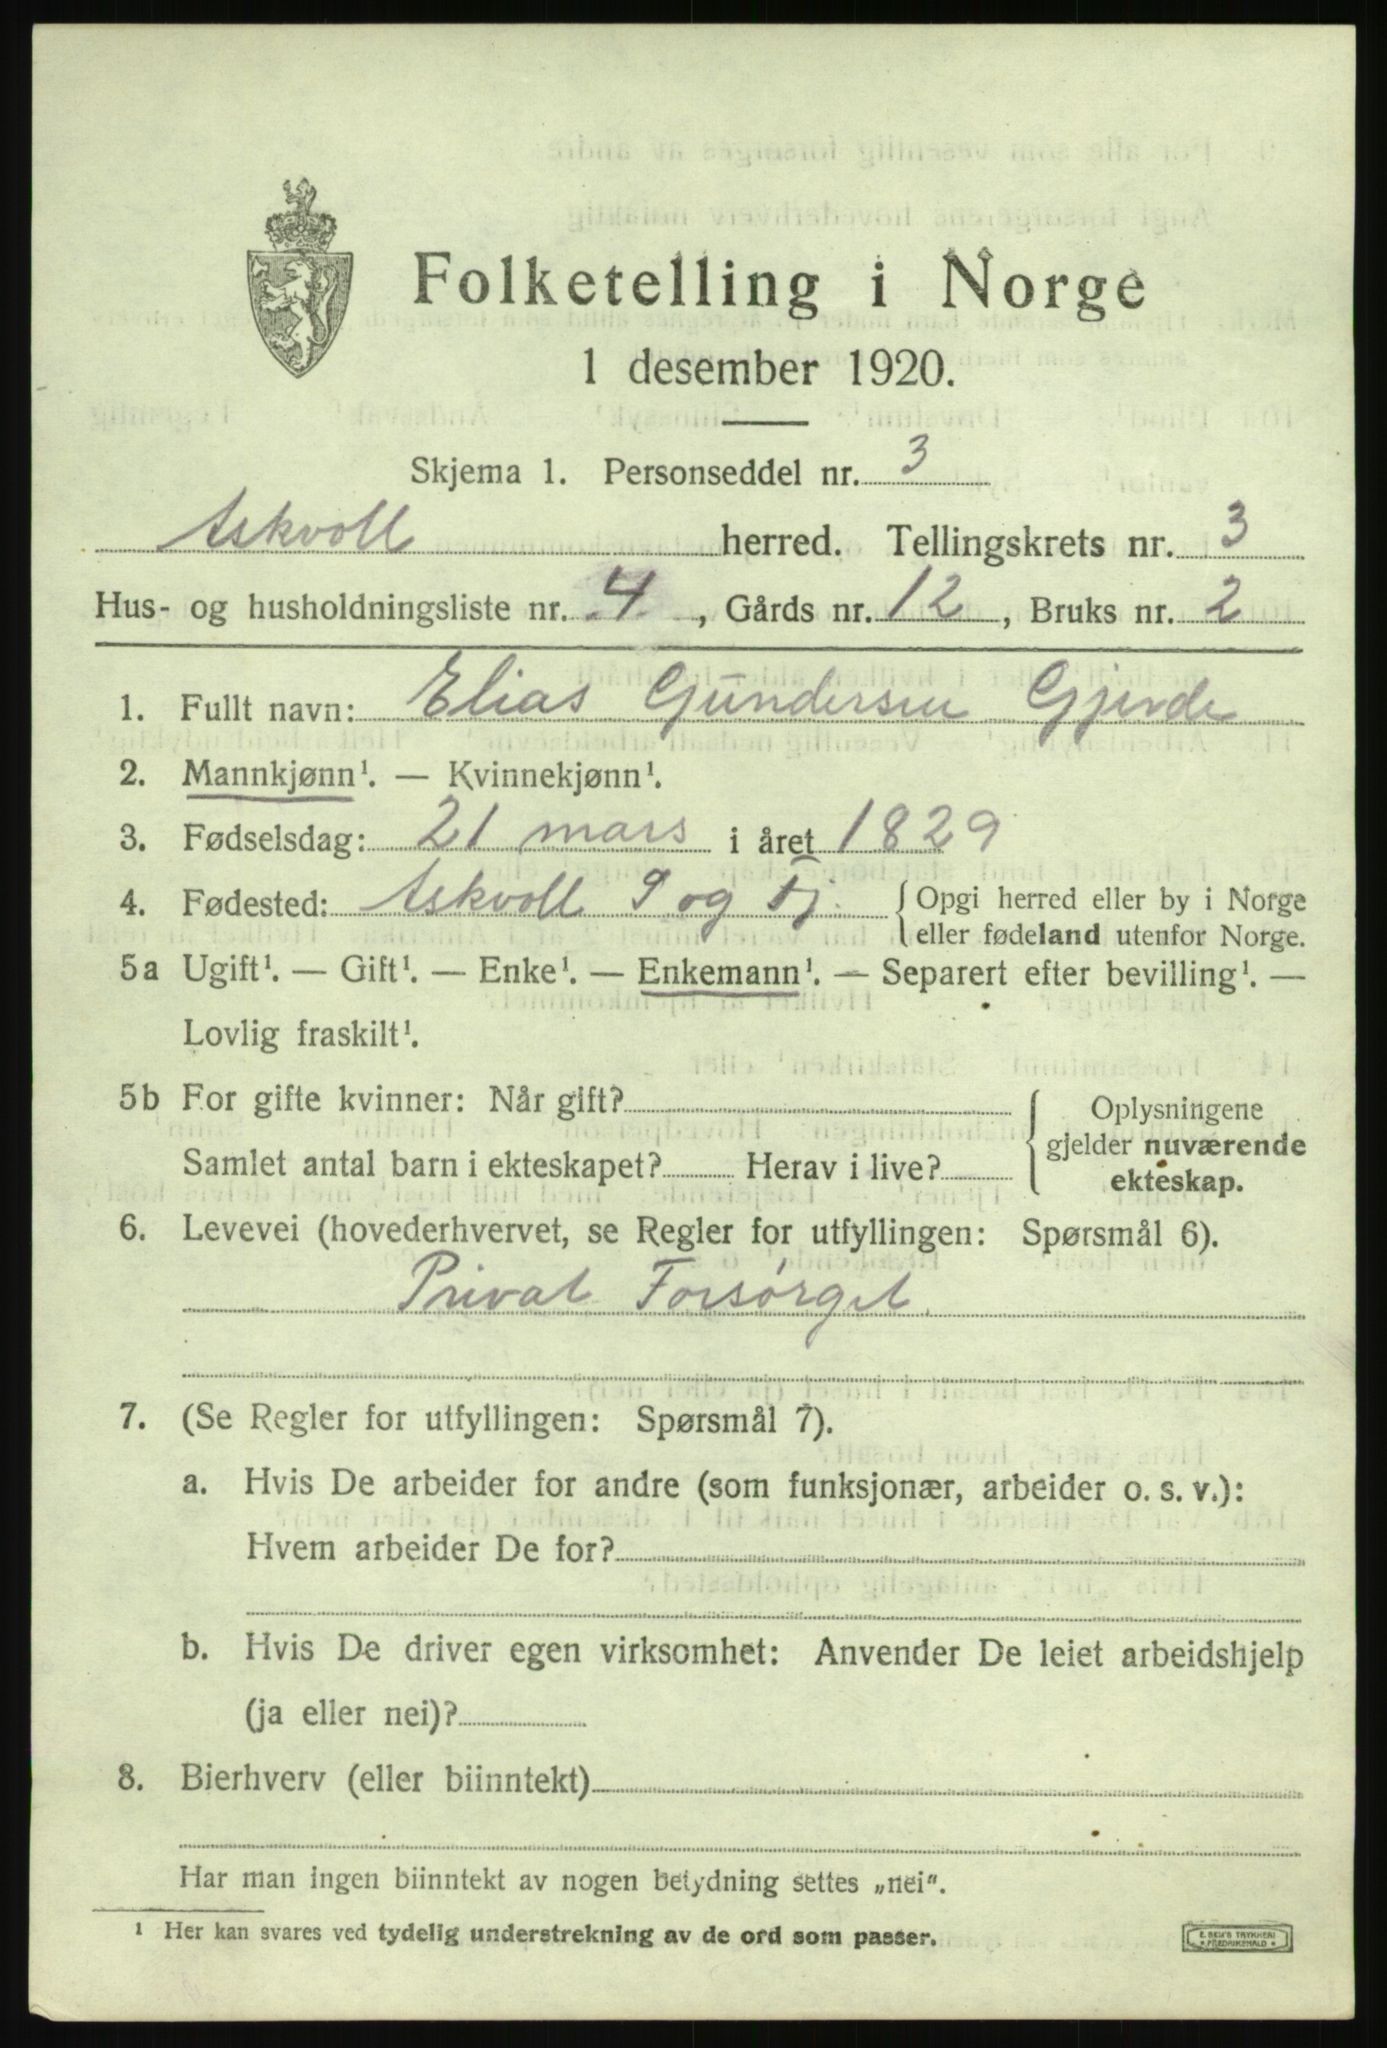 Folketelling i Norge
1 desember 1920.
Skjema 1. Personseddel nr. 3
Askvoll herred. Tellingskrets nr. 3
Hus- og husholdningsliste nr. 4, Gårds nr. 12, Bruks nr. 2
1. Fullt navn: Elias Gundersen Gjerde
2. Mannkjønn¹. — Kvinnekjønn¹.
3. Fødselsdag: 21 mars i året 1829
4. Fødested: Askvoll S og Fj. { Opgi herred eller by i Norge
eller fødeland utenfor Norge.
5a Ugift¹. — Gift¹. — Enke¹. — Enkemann¹. — Separert efter bevilling¹. —
Lovlig fraskilt¹.
5b For gifte kvinner: Når gift? { Oplysningene
gjelder nuværende
Samlet antal barn i ekteskapet? Herav i live?
ekteskap.
6. Levevei (hovederhvervet, se Regler for utfyllingen: Spørsmål 6).
Privat Forsørget
7. (Se Regler for utfyllingen: Spørsmål 7).
a. Hvis De arbeider for andre (som funksjonær, arbeider o. s. v.):
Hvem arbeider De for?
b. Hvis De driver egen virksomhet: Anvender De leiet arbeidshjelp
(ja eller nei)?
8. Bierhverv (eller biinntekt)
Har man ingen biinntekt av nogen betydning settes „nei".
¹ Her kan svares ved tydelig understrekning av de ord som passer.
E. SEM'S TRYKKERI
FREDRIKSHALD